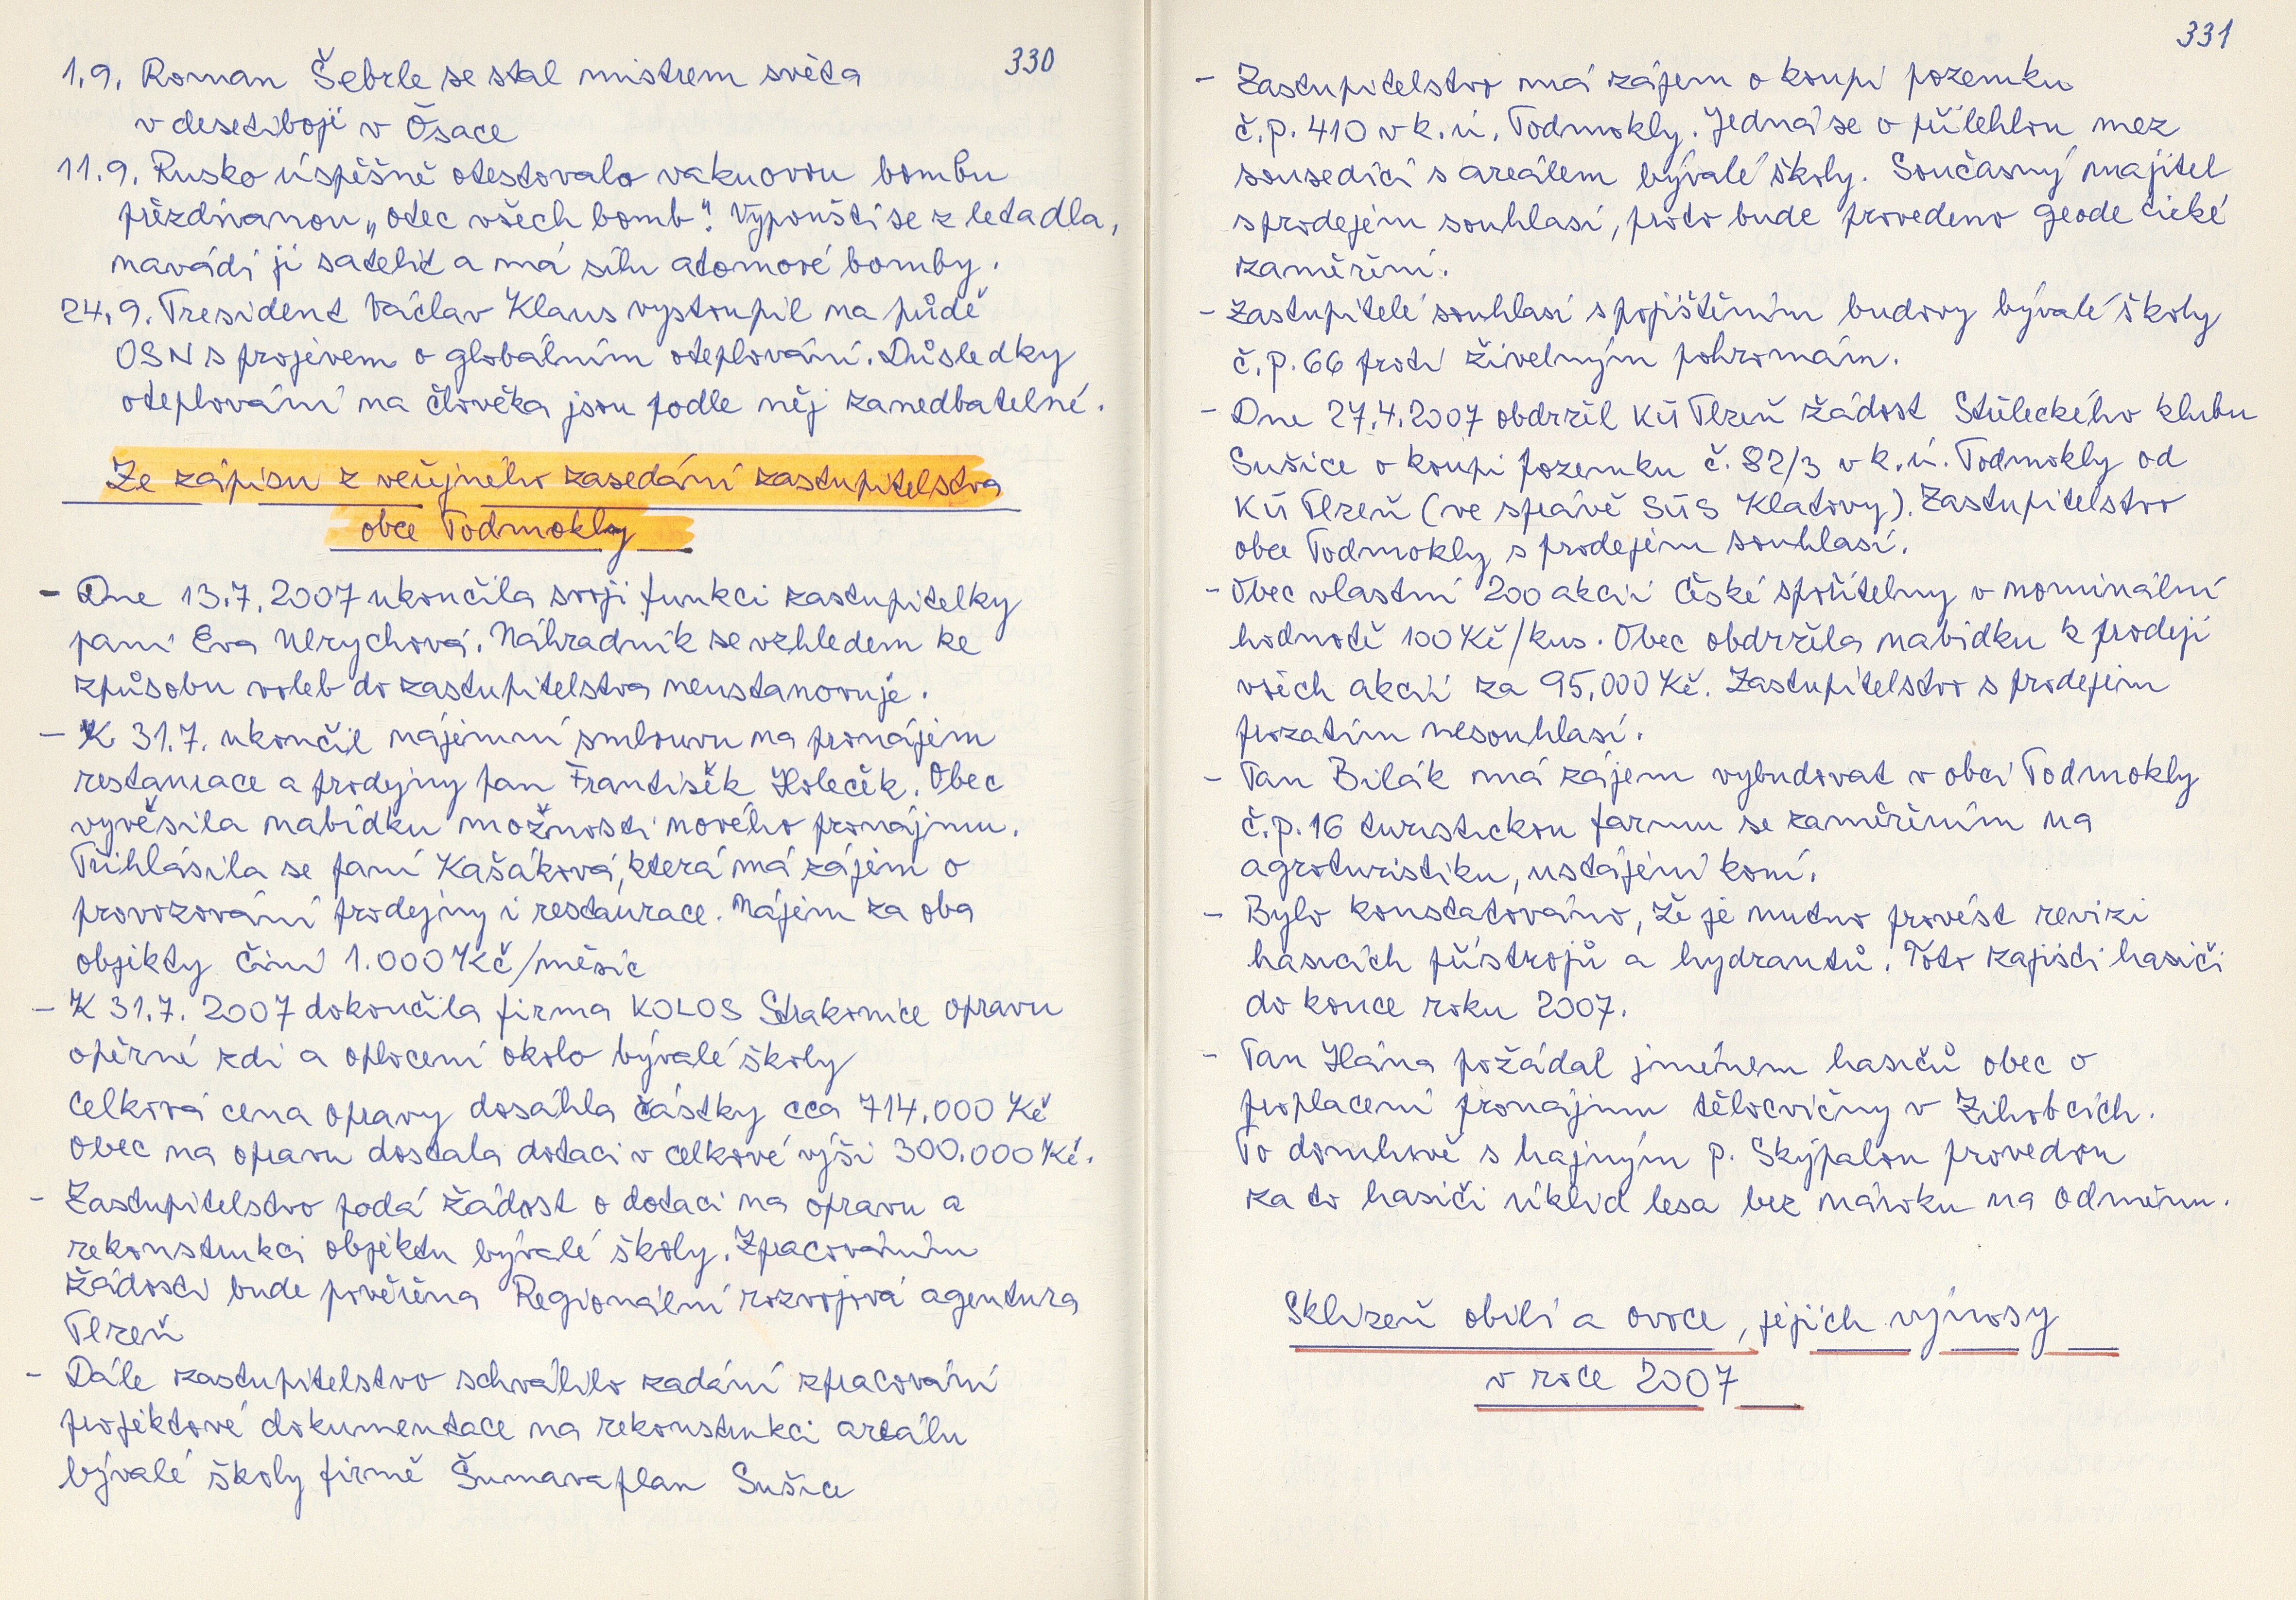 330
1.9. Roman Šebrle se stal mistrem světa
v desetiboji v Ósace
11.9. Rusko úspěšně otestovalo vakuovou bombu
přezdívanou „otec všech bomb“. Vypouští se z letadla,
navádí ji satelit a má sílu atomové bomby.
24.9. President Václav Klaus vystoupil na půdě
OSN s projevem o globálním oteplování. Důsledky
oteplování na člověka jsou podle něj zanedbatelné.
Ze zápisu z veřejného zasedání zastupitelstva
obce Podmokly
- Dne 13.7.2007 ukončila svoji funkci zastupitelky
paní Eva Ulrychová. Náhradník se vzhledem ke
způsobu voleb do zastupitelstva neustanovuje.
- K 31.7. ukončil nájemní smlouvu na pronájem
restaurace a prodejny pan František Holeček. Obec
vyvěsila nabídku možnosti nového pronájmu.
Přihlásila se paní Kašáková, která má zájem o
provozování prodejny i restaurace. Nájem za oba
objekty činí 1.000 Kč/měsíc
- K 31.7. 2007 dokončila firma KOLOS Strakonice opravu
opěrné zdi a oplocení okolo bývalé školy
Celková cena opravy dosáhla částky cca 714.000 Kč
Obec na opravu dostala dotaci v celkové výši 300.000 Kč.
- Zastupitelstvo podá žádost o dotaci na opravu a
rekonstrukci objektu bývalé školy. Zpracováním
žádosti bude pověřena Regionální rozvojová agentura
Plzeň
- Dále zastupitelstvo schválilo zadání zpracování
projektové dokumentace na rekonstrukci areálu
bývalé školy firmě Šumavaplan Sušice
331
- Zastupitelstvo má zájem o koupi pozemku
č.p. 410 v k.ú. Podmokly. Jedná se o přilehlou mez
sousedící s areálem bývalé školy. Současný majitel
s prodejem souhlasí, proto bude provedeno geodetické
zaměření.
- Zastupitelé souhlasí s pojištěním budovy bývalé školy
č.p. 66 proti živelným pohromám.
- Dne 27.4.2007 obdržel KÚ Plzeň žádost Střeleckého klubu
Sušice o koupi pozemku č. 82/3 v k.ú. Podmokly od
KÚ Plzeň (ve správě SÚS Klatovy). Zastupitelstvo
obce Podmokly s prodejem souhlasí.
- Obec vlastní 200 akcií České spořitelny v nominální
hodnotě 100 Kč/kus. Obec obdržela nabídku k prodeji
všech akcií za 95.000 Kč. Zastupitelstvo s prodejem
prozatím nesouhlasí.
- Pan Bilák má zájem vybudovat v obci Podmokly
č.p. 16 turistickou farmu se zaměřením na
agroturistiku, ustájení koní.
- Bylo konstatováno, že je nutno provést revizi
hasicích přístrojů a hydrantů. Toto zajistí hasiči
do konce roku 2007.
- Pan Hána požádal jménem hasičů obec o
proplacení pronájmu tělocvičny v Žihobcích.
Po domluvě s hajným p. Skýpalou provedou
za to hasiči úklid lesa bez nároku na odměnu.
Sklizeň obilí a ovoce, jejich výnosy
v roce 2007